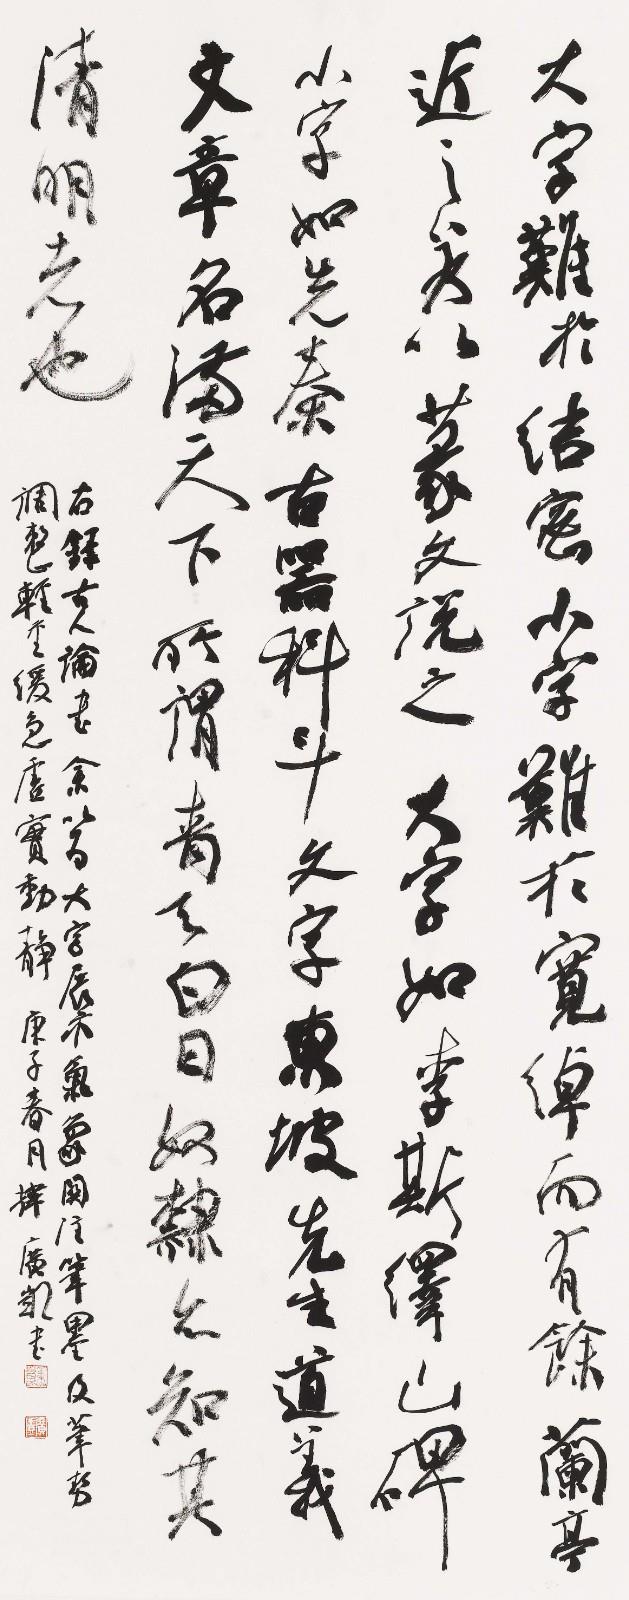 大字難於結密小字難於寬綽而有餘蘭亭
近之若以篆文說之大字如李斯繹山碑
小字如先秦古器科斗文字東坡先生道義
文章名滿天下所謂青天白日奴隸亦知其
清明者也
右錄古人論書余寫大字展示氣象關注筆墨及筆勢
調整輕重緩急虛實動靜庚子春月 廣凱書